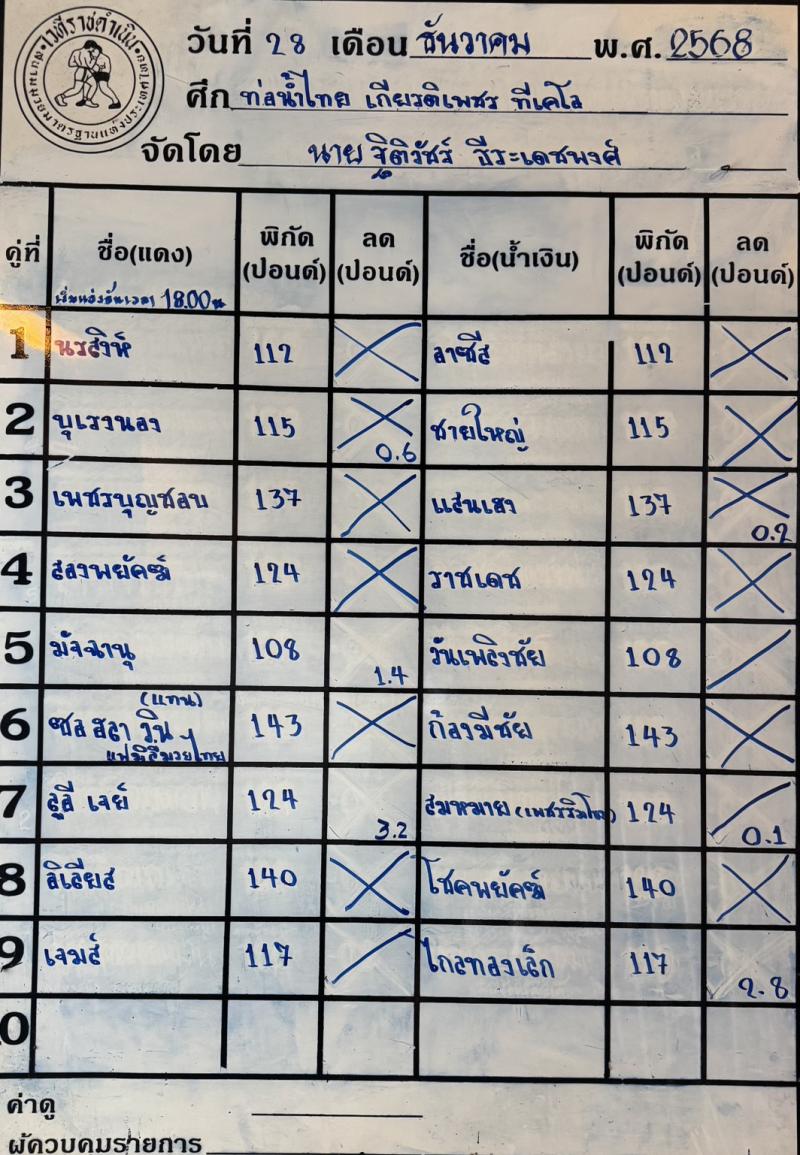 เวทีราชดำเนิน
สนามมวยมาตรฐานแห่งประเทศไทย
วันที่ 28 เดือน ธันวาคม พ.ศ. 2568
ศึก ท่อน้ำไทย เกียรติเพชร ทีเคโอ
จัดโดย นาย ฐิติวัชร์ ธีระเดชพงศ์
คู่ที่ ชื่อ(แดง) พิกัด (ปอนด์) ลด (ปอนด์) ชื่อ(น้ำเงิน) พิกัด (ปอนด์) ลด (ปอนด์)
เริ่มแข่งขันเวลา 18.00 น
1 นรสิงห์ 112 ลาซีส 112
2 บุเรงนอง 115 0.6 ชายใหญ่ 115
3 เพชรบุญชอบ 137 แสนเสง 137 0.2
4 สองพยัคฆ์ 124 ราชเดช 124
5 มัจฉานุ 108 1.4 วันเพลิงชัย 108
(แทน)
6 ซอ สลา วิน 143 ก้องมีชัย 143
แฟมิลี่มวยไทย
7 ลูลี เจย์ 124 3.2 สมหมาย 124 0.1
8 อิเลียส 140 โชคพยัคฆ์ 140
9 เจมส์ 117 ไกลทองเล็ก 117 2.8
0
ค่าดู
ผู้ควบคุมรายการ